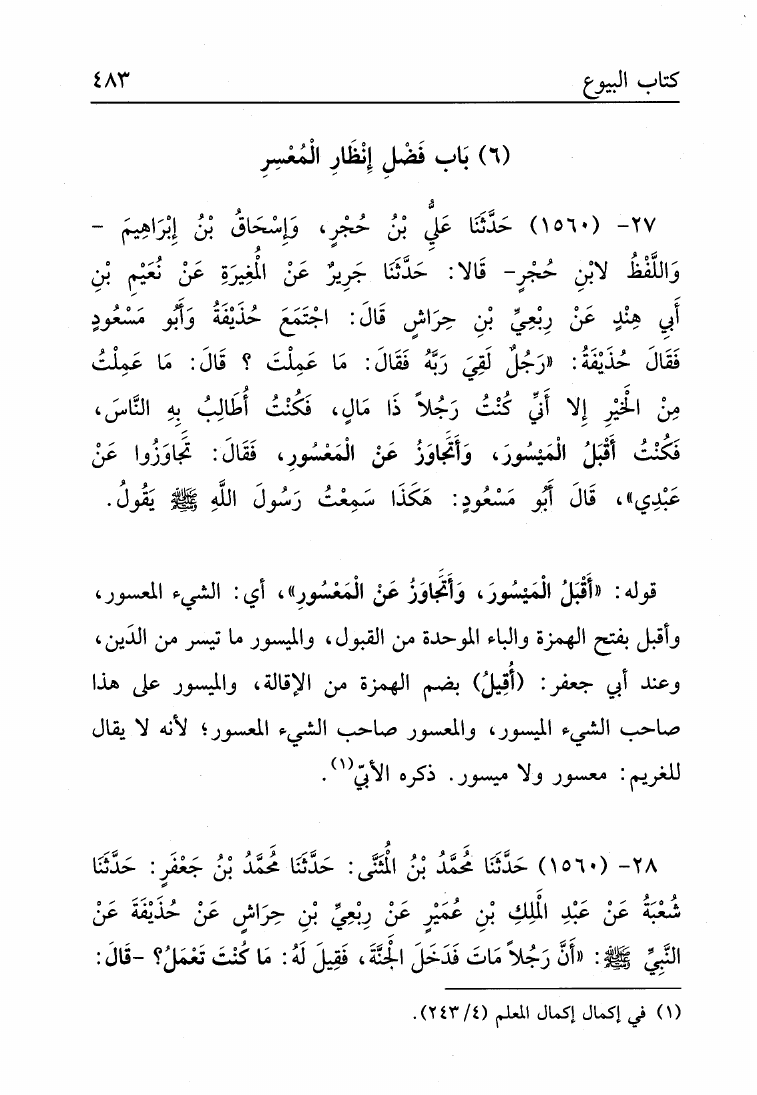 كتاب البيوع ٤٨٣
(٦) بَاب فَضْلِ إِنْظَارِ الْمُعْسِرِ
٢٧- (١٥٦٠) حَدَّثَنَا عَلِيُّ بْنُ حُجْرٍ، وَإِسْحَاقُ بْنُ إِبْرَاهِيمَ -
وَاللَّفْظُ لابْنِ حُجْرٍ- قَالا: حَدَّثَنَا جَرِيرٌ عَنْ الْمُغِيرَةِ عَنْ نُعَيْمِ بْنِ
أَبِي هِنْدٍ عَنْ رِبْعِيِّ بْنِ حِرَاشٍ قَالَ: اجْتَمَعَ حُذَيْفَةُ وَأَبُو مَسْعُودٍ
فَقَالَ حُذَيْفَةُ: «رَجُلٌ لَقِيَ رَبَّهُ فَقَالَ: مَا عَمِلْتَ ؟ قَالَ: مَا عَمِلْتُ
مِنْ الْخَيْرِ إِلا أَنِّي كُنْتُ رَجُلاً ذَا مَالٍ، فَكُنْتُ أُطَالِبُ بِهِ النَّاسَ،
فَكُنْتُ أَقْبَلُ الْمَيْسُورَ، وَأَتَجَاوَزُ عَنْ الْمَعْسُورِ، فَقَالَ: تَجَاوَزُوا عَنْ
عَبْدِي»، قَالَ أَبُو مَسْعُودٍ: هَكَذَا سَمِعْتُ رَسُولَ اللَّهِ ﷺ يَقُولُ.
قوله: «أَقْبَلُ الْمَيْسُورَ، وَأَتَجَاوَزُ عَنْ الْمَعْسُورِ»، أي: الشيء المعسور،
وأقبل بفتح الهمزة والباء الموحدة من القبول، والميسور ما تيسر من الدَين،
وعند أبي جعفر: (أُقِيلُ) بضم الهمزة من الإقالة، والميسور على هذا
صاحب الشيء الميسور، والمعسور صاحب الشيء المعسور؛ لأنه لا يقال
للغريم: معسور ولا ميسور. ذكره الأبيّ(١).
٢٨- (١٥٦٠) حَدَّثَنَا مُحَمَّدُ بْنُ الْمُثَنَّى: حَدَّثَنَا مُحَمَّدُ بْنُ جَعْفَرٍ: حَدَّثَنَا
شُعْبَةُ عَنْ عَبْدِ الْمَلِكِ بْنِ عُمَيْرٍ عَنْ رِبْعِيِّ بْنِ حِرَاشٍ عَنْ حُذَيْفَةَ عَنْ
النَّبِيِّ ﷺ: «أَنَّ رَجُلاً مَاتَ فَدَخَلَ الْجَنَّةَ، فَقِيلَ لَهُ: مَا كُنْتَ تَعْمَلُ؟ -قَالَ:
(١) في إكمال إكمال المعلم (٢٤٣/٤).